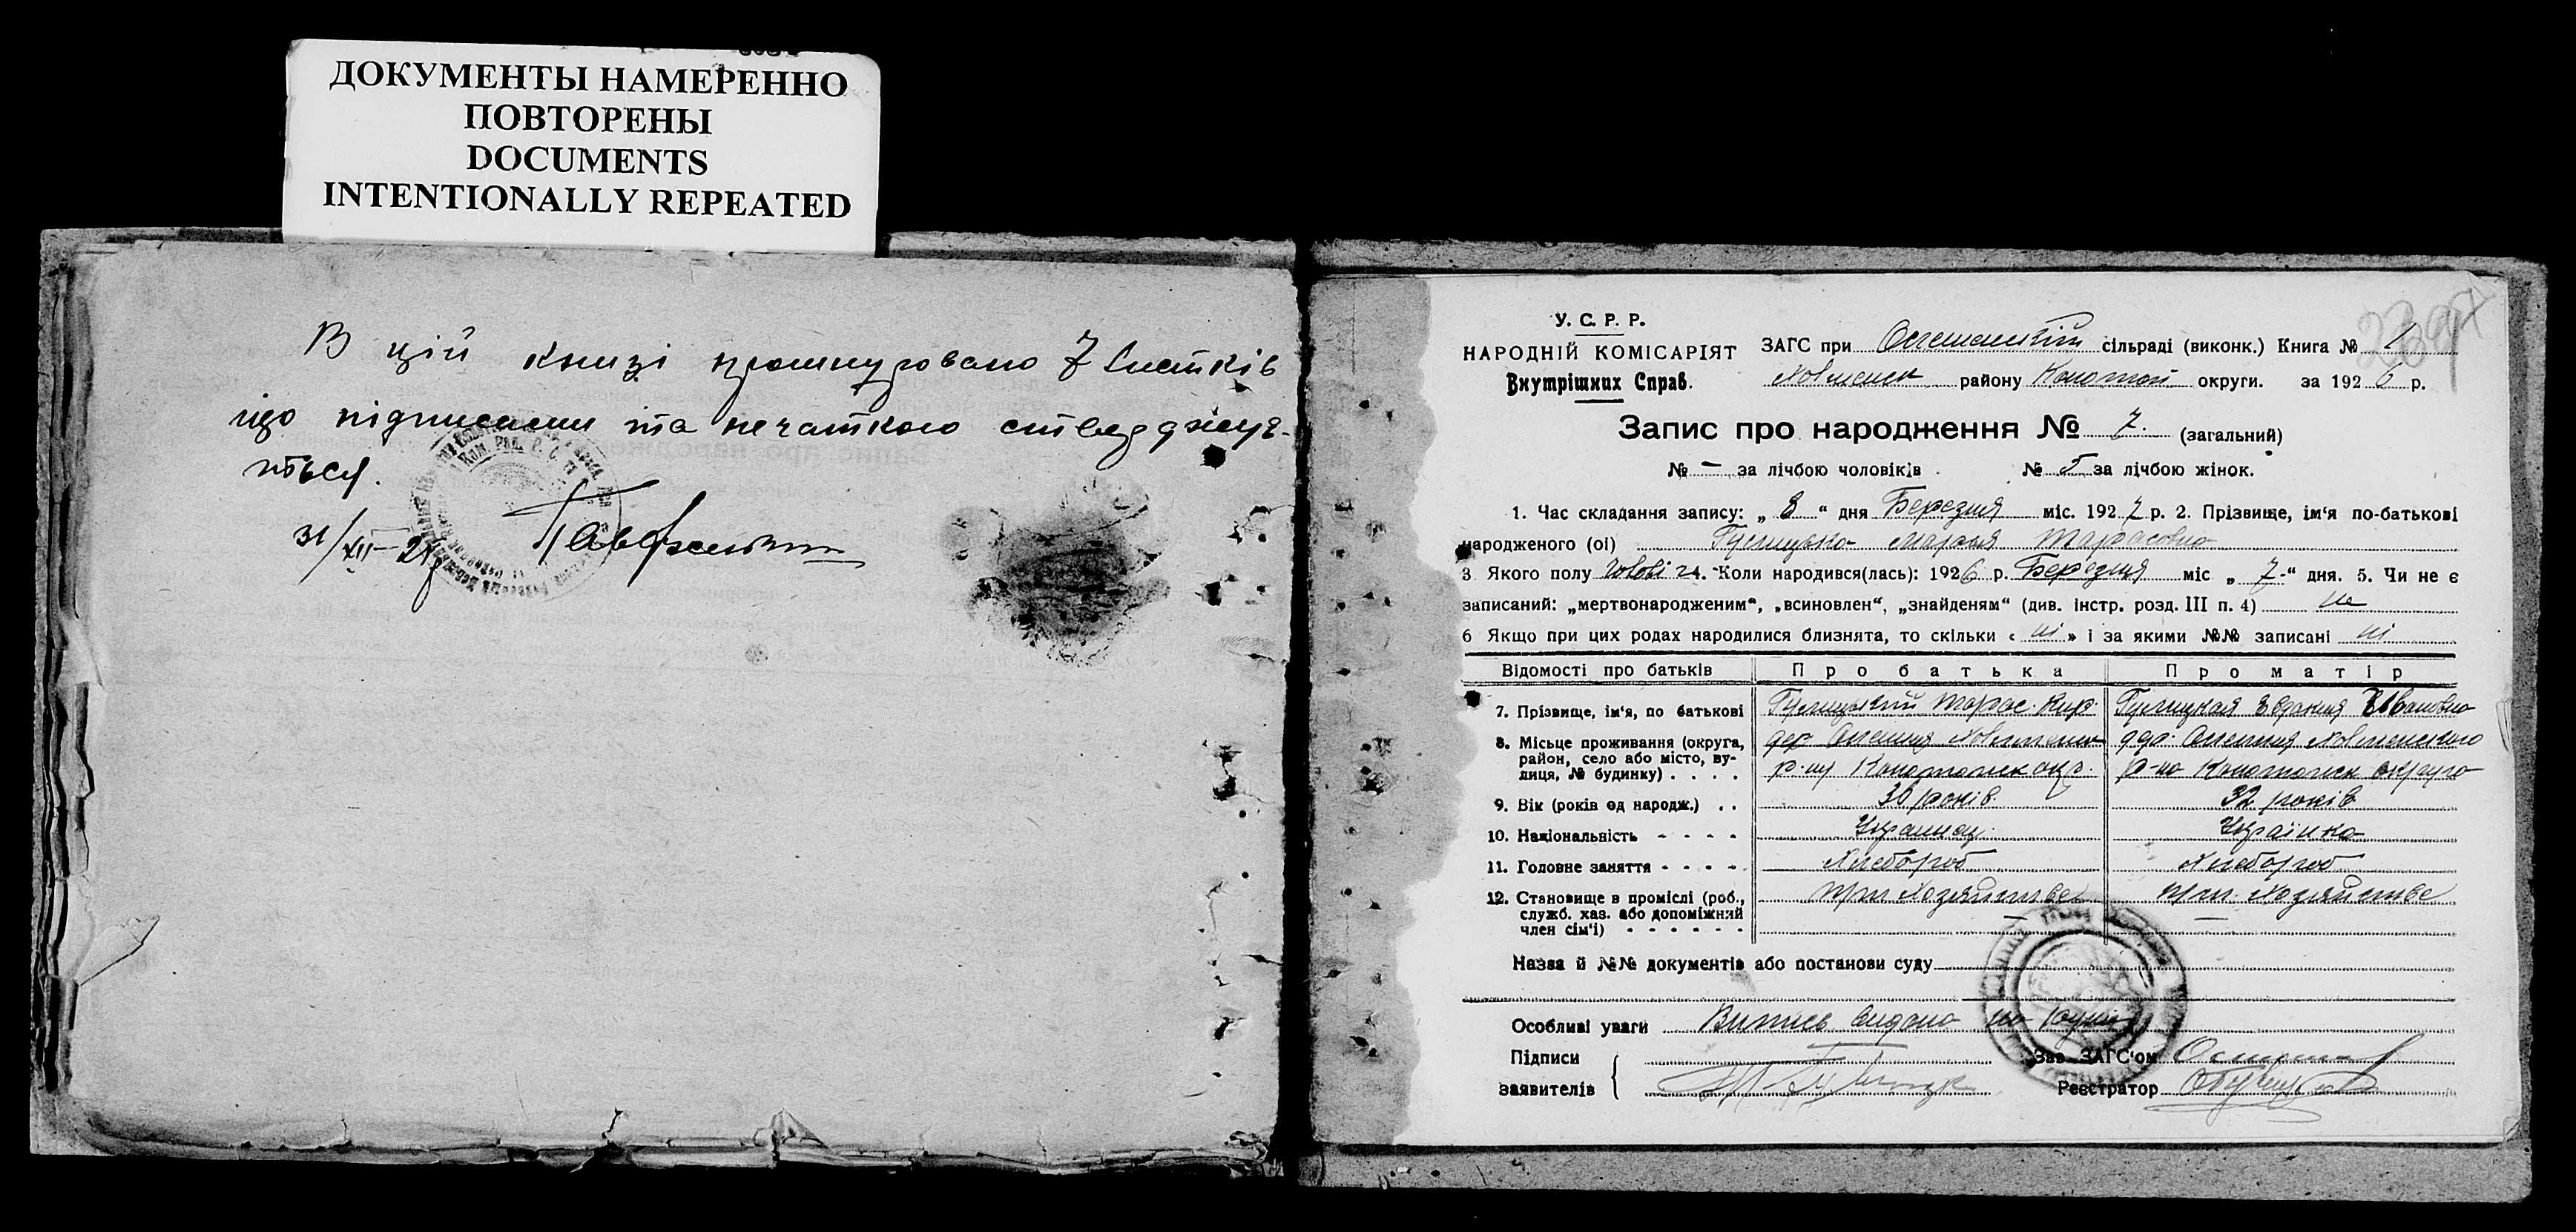 ДОКУМЕНТЫ НАМЕРЕННО
ПОВТОРЕНЫ
DOCUMENTS
INTENTIONALLY REPEATED
В цій книзі прошнуровано 7 листків
що підписами та печаткою стверджує-
ться.
31/XII-27
У. С. Р. Р.
НАРОДНІЙ КОМІСАРІЯТ
Внутрішних Справ.
ЗАГС при сільраді (виконк.) Книга № 1
району Конотоп округи. за 1926 р.
Запис про народження № 7. (загальний)
№ – за лічбою чоловіків № 5 за лічбою жінок.
1. Час складання запису: „ 8 “ дня Березня міс. 1927 р. 2. Прізвище, ім'я по-батькові
народженого (ої) Тарасовна
3 Якого полу 4. Коли народився(лась): 1926 р. Березня міс „ 7 “ дня. 5. Чи не є
записаний: „мертвонародженим“, „всиновлен“, „знайденям“ (див. інстр. розд. III п. 4) не
6 Якщо при цих родах народилися близнята, то скільки « ні » і за якими №№ записані ні
Відомості про батьків Про батька Про матір
7. Прізвище, ім'я, по батькові Тарас Кир. Ивановна
8. Місьце проживання (округа, район, село або місто, вулиця, № будинку) . . . . дер. р-ну Конотопск окр. дер. р-на Конотопск округа
9. Вік (років од народж.) . . 36 років. 32 років
10. Національність - - - - Украинец Українка
11. Головне заняття - - - - Хлебороб Хлебороб
12. Становище в промислі (роб., служб. хаз. або допоміжний член сім'ї) - - - - - - при хозяйстве при хозяйстве
Назва й №№ документів або постанови суду
Особливі уваги Випись видана на руки
Підписи
заявителів
Зав. ЗАГС'ом
Реєстратор